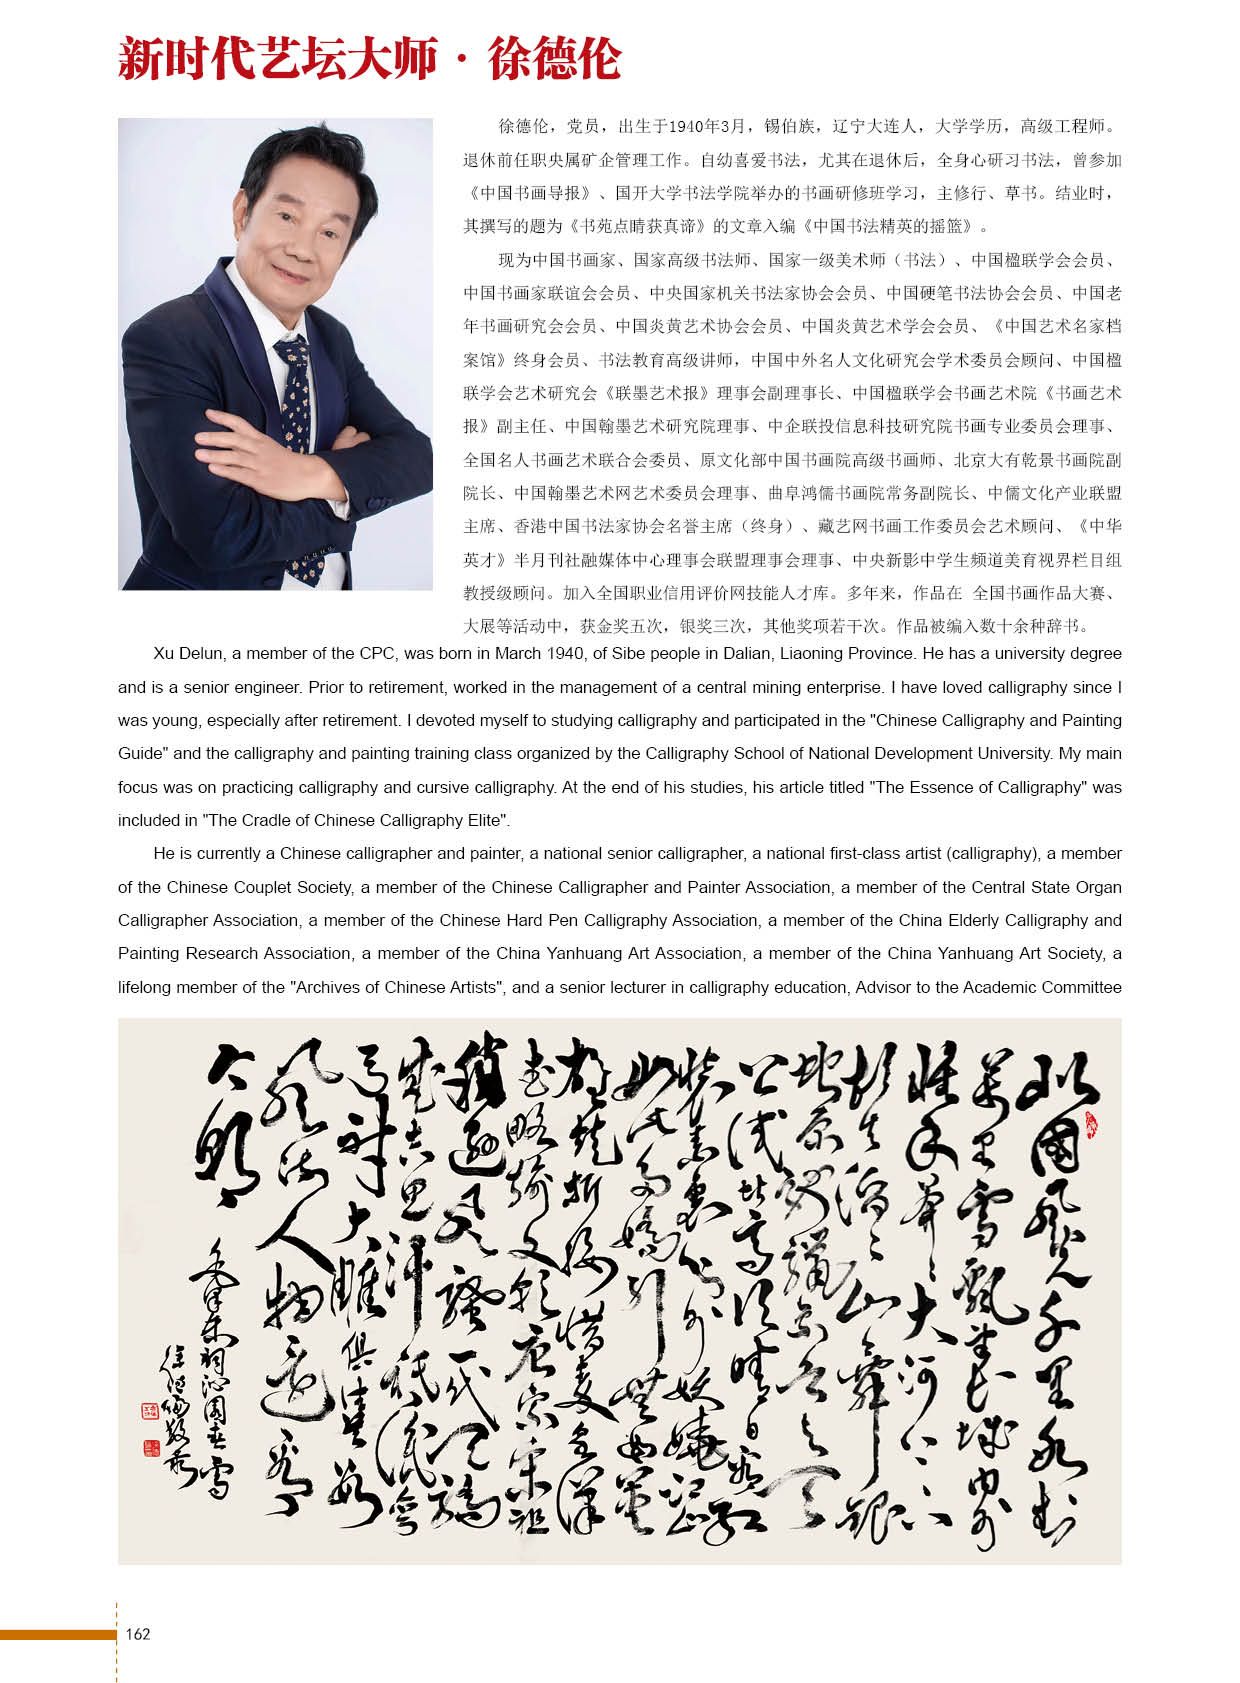 新时代艺坛大师·徐德伦
徐德伦，党员，出生于1940年3月，锡伯族，辽宁大连人，大学学历，高级工程师。
退休前任职央属矿企管理工作。自幼喜爱书法，尤其在退休后，全身心研习书法，曾参加
《中国书画导报》、国开大学书法学院举办的书画研修班学习，主修行、草书。结业时，
其撰写的题为《书苑点睛获真谛》的文章入编《中国书法精英的摇篮》。
现为中国书画家、国家高级书法师、国家一级美术师（书法）、中国楹联学会会员、
中国书画家联谊会会员、中央国家机关书法家协会会员、中国硬笔书法协会会员、中国老
年书画研究会会员、中国炎黄艺术协会会员、中国炎黄艺术学会会员、《中国艺术名家档
案馆》终身会员、书法教育高级讲师，中国中外名人文化研究会学术委员会顾问、中国楹
联学会艺术研究会《联墨艺术报》理事会副理事长、中国楹联学会书画艺术院《书画艺术
报》副主任、中国翰墨艺术研究院理事、中企联投信息科技研究院书画专业委员会理事、
全国名人书画艺术联合会委员、原文化部中国书画院高级书画师、北京大有乾景书画院副
院长、中国翰墨艺术网艺术委员会理事、曲阜鸿儒书画院常务副院长、中儒文化产业联盟
主席、香港中国书法家协会名誉主席（终身）、藏艺网书画工作委员会艺术顾问、《中华
英才》半月刊社融媒体中心理事会联盟理事会理事、中央新影中学生频道美育视界栏目组
教授级顾问。加入全国职业信用评价网技能人才库。多年来，作品在 全国书画作品大赛、
大展等活动中，获金奖五次，银奖三次，其他奖项若干次。作品被编入数十余种辞书。
Xu Delun, a member of the CPC, was born in March 1940, of Sibe people in Dalian, Liaoning Province. He has a university degree
and is a senior engineer. Prior to retirement, worked in the management of a central mining enterprise. I have loved calligraphy since I
was young, especially after retirement. I devoted myself to studying calligraphy and participated in the "Chinese Calligraphy and Painting
Guide" and the calligraphy and painting training class organized by the Calligraphy School of National Development University. My main
focus was on practicing calligraphy and cursive calligraphy. At the end of his studies, his article titled "The Essence of Calligraphy" was
included in "The Cradle of Chinese Calligraphy Elite".
He is currently a Chinese calligrapher and painter, a national senior calligrapher, a national first-class artist (calligraphy), a member
of the Chinese Couplet Society, a member of the Chinese Calligrapher and Painter Association, a member of the Central State Organ
Calligrapher Association, a member of the Chinese Hard Pen Calligraphy Association, a member of the China Elderly Calligraphy and
Painting Research Association, a member of the China Yanhuang Art Association, a member of the China Yanhuang Art Society, a
lifelong member of the "Archives of Chinese Artists", and a senior lecturer in calligraphy education, Advisor to the Academic Committee
北国风光千里冰封
万里雪飘望长城内外
惟余莽莽大河上下
顿失滔滔山舞银
蛇原驰蜡象欲与天
公试比高须晴日看红
装素裹分外妖娆江山
如此多娇引无数英
雄竞折腰惜秦皇汉
武略输文采唐宗宋祖
稍逊风骚一代天骄
成吉思汗只识弯
弓射大雕俱往矣数
风流人物还看
今朝
毛泽东词沁园春雪
徐德伦敬书
162